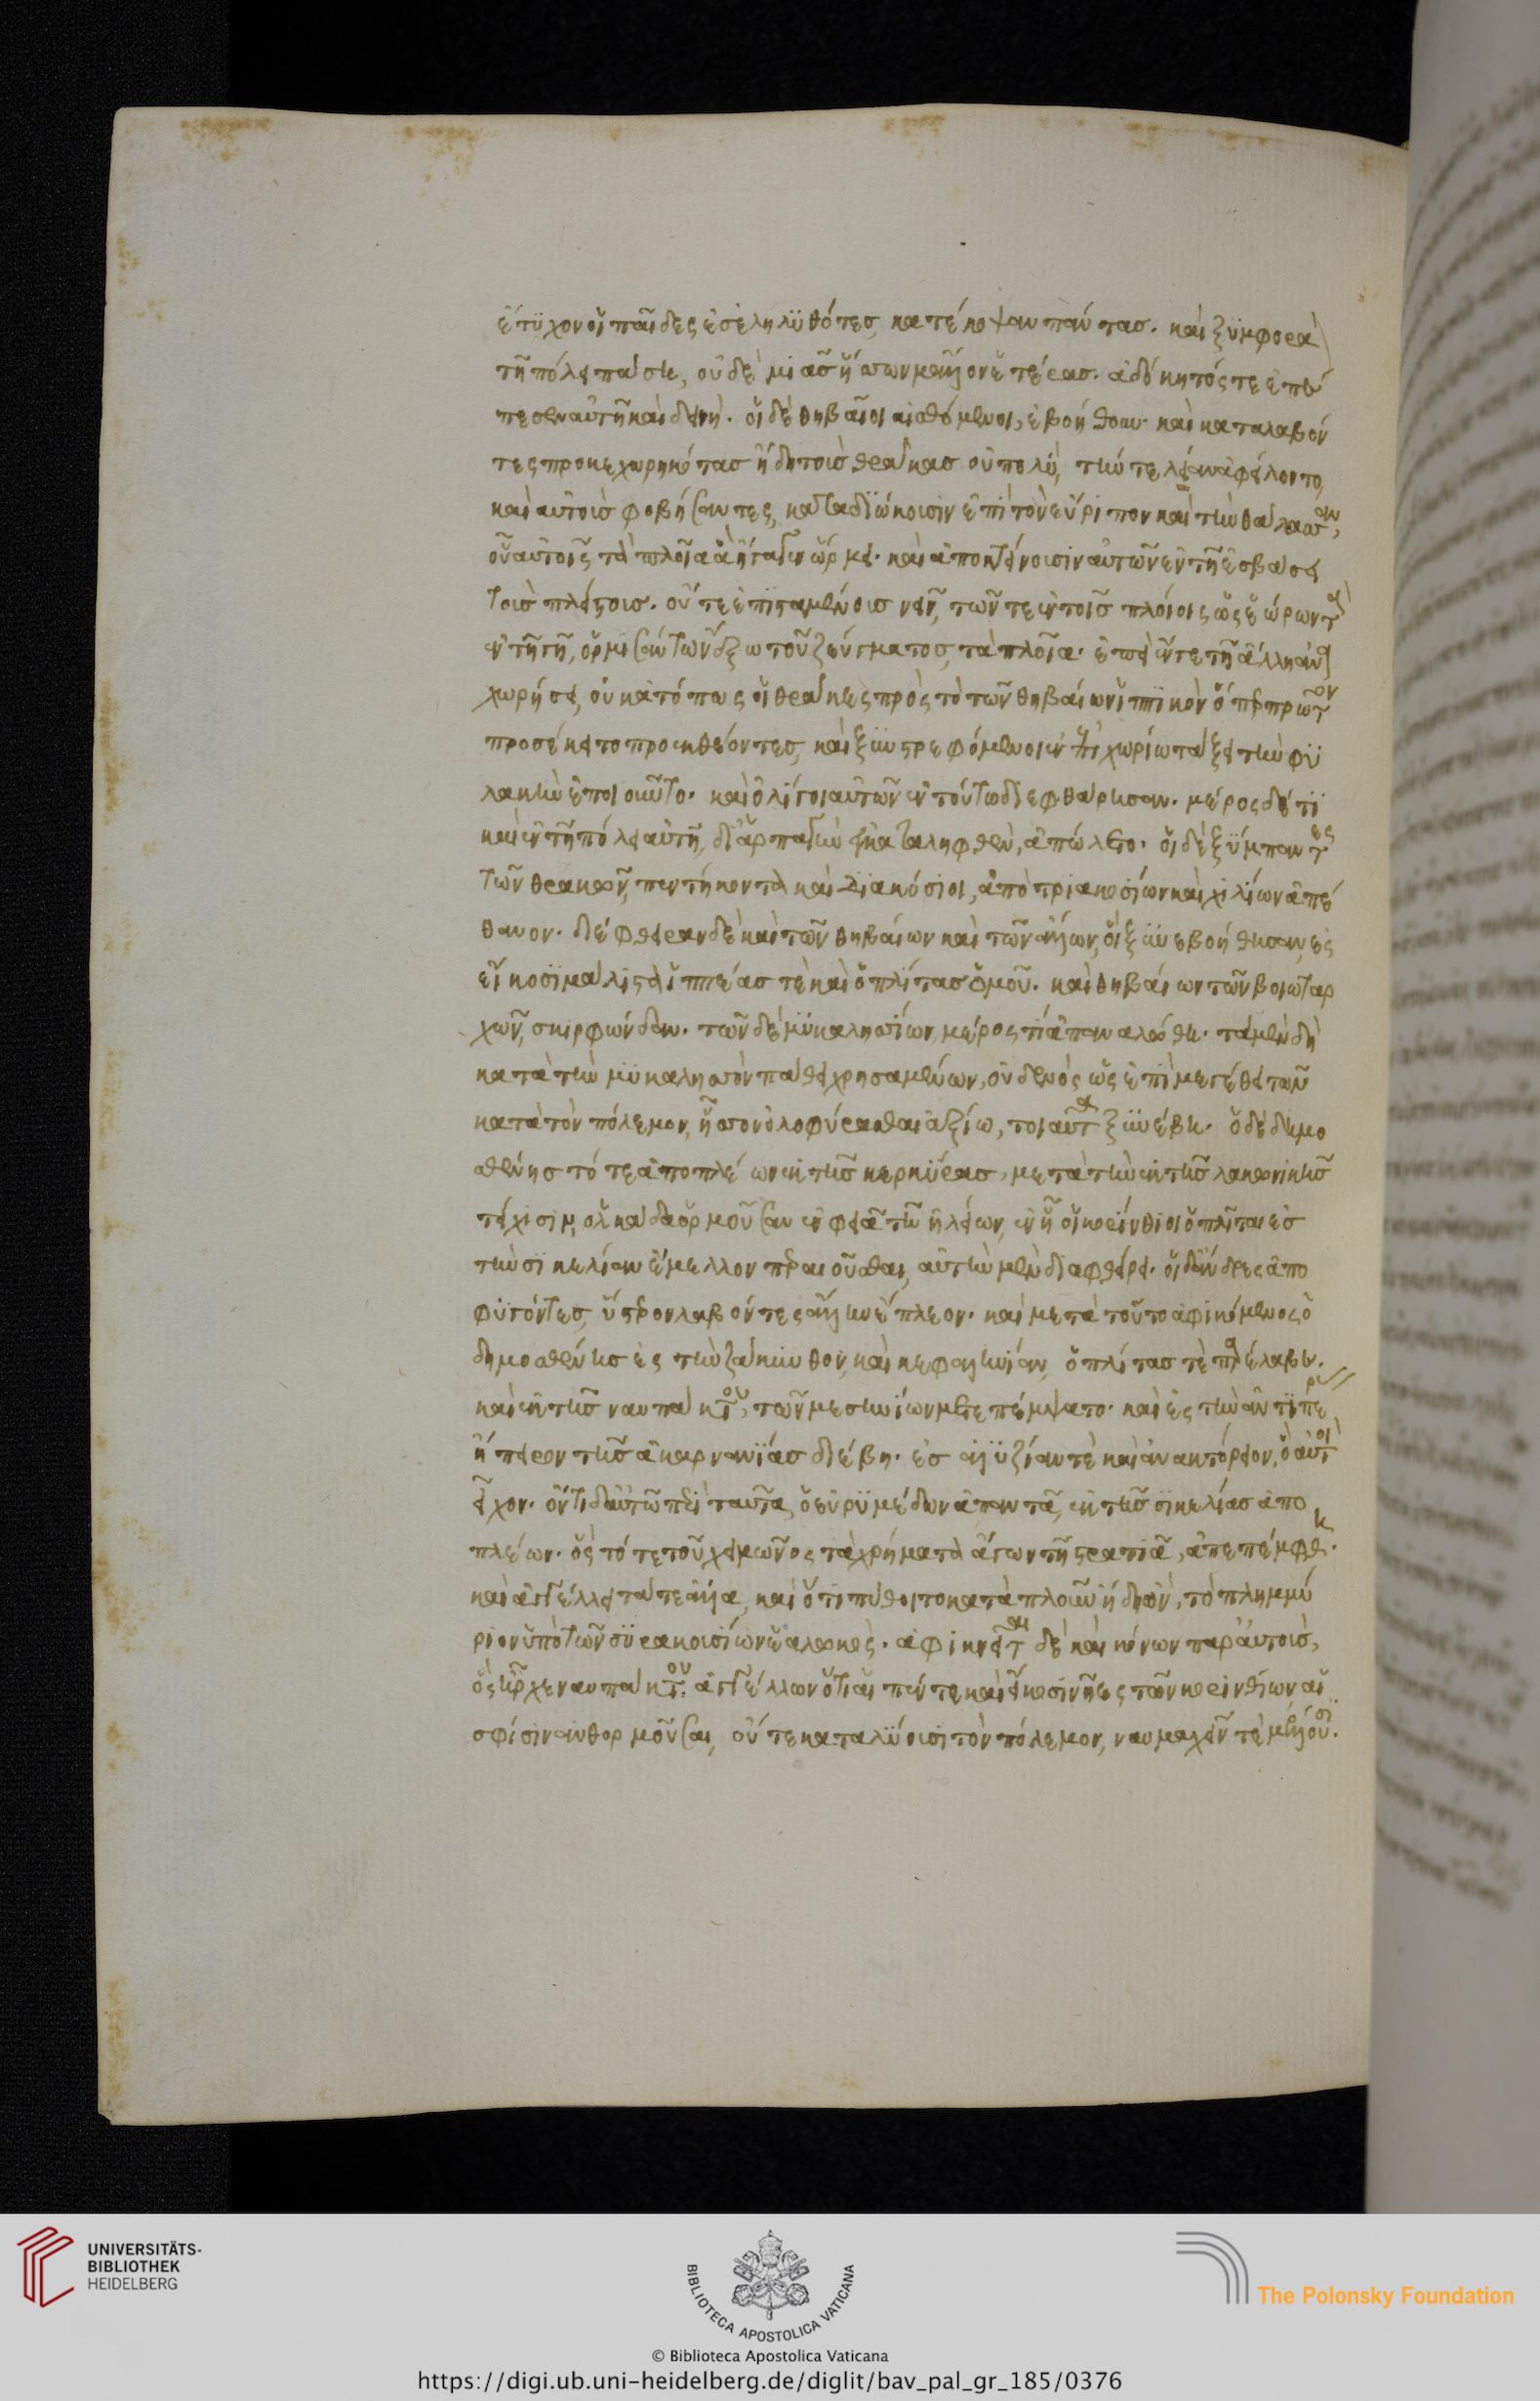 ἔτυχον οἱ παῖδες ἐσεληλυθότες, κατέκοψαν πάντας. καὶ ξυμφορὰ
τῇ πόλει πάσῃ, οὐδὲ μιᾶς ἥσσων μᾶλλον ἑτέρας. ἀδόκητός τε ἐπέ
πεσεν αὐτῇ καὶ δεινή. οἱ δὲ θηβαῖοι αἰσθόμενοι, ἐβοήθουν· καὶ καταλαβόν
τες προκεχωρηκότας ἤδη τοὺς θρᾷκας οὐ πολύ, τήν τε λείαν ἀφείλοντο,
καὶ αὐτοὺς φοβήσαντες, καταδιώκουσιν ἐπὶ τὸν εὔριπον καὶ τὴν θάλασσαν,
οὗ αὐτοῖς τὰ πλοῖα ἃ ἤγαγεν ὥρμει. καὶ ἀποκτείνουσιν αὐτῶν ἐν τῇ ἐσβάσει
τοὺς πλείστους. οὔτε ἐπισταμένους νεῖν, τῶν τε ἐν τοῖς πλοίοις ὡς ἑώρων τὰ
ἐν τῇ γῇ, ὁρμισάντων ἔξω τοῦ ζεύγματος, τὰ πλοῖα. ἐπεὶ ἔν γε τῇ ἄλλῃ ἀνα
χωρήσει, οὐκ ἀτόπως οἱ θρᾷκες πρὸς τὸ τῶν θηβαίων ἱππικὸν ὅπερ πρῶτον
προσέκειτο προεκθέοντες, καὶ ξυστρεφόμενοι ἐν ἐπιχωρίῳ τάξει τὴν φυ
λακὴν ἐποιοῦντο. καὶ ὀλίγοι αὐτῶν ἐν τούτῳ διεφθάρησαν. μέρος δέ τι
καὶ ἐν τῇ πόλει αὐτῇ, δι' ἁρπαγὴν ἐγκαταληφθέν, ἀπώλετο. οἱ δὲ ξύμπαντες
τῶν θρᾳκῶν, πεντήκοντα καὶ διακόσιοι, ἀπὸ τριακοσίων καὶ χιλίων ἀπέ
θανον. διέφθειραν δὲ καὶ τῶν θηβαίων καὶ τῶν ἄλλων, οἳ ξυνεβοήθησαν, ἐς
εἴκοσι μάλιστα ἱππέας τὲ καὶ ὁπλίτας ὁμοῦ. καὶ θηβαίων τῶν βοιωταρ
χῶν, σκιρφώνδαν. τῶν δὲ μυκαλησσίων, μέρος τι ἀπαναλώθη. τὰ μὲν δὴ
κατὰ τὴν μυκαλησσὸν πάθει χρησαμένων, οὐδενὸς ὡς ἐπὶ μεγέθει τῶν
κατὰ τὸν πόλεμον, ἧσσον ὀλοφύρασθαι ἀξίῳ, τοιαῦτα ξυνέβη. ὁ δὲ δημο
σθένης τότε ἀποπλέων ἐκ τῆς κερκύρας, μετὰ τὴν ἐκ τῆς λακωνικῆς
τείχισιν, ὁλκάδα ὁρμοῦσαν ἐν φειᾷ τῇ ἠλείων, ἐν ᾗ οἱ κορίνθιοι ὁπλῖται ἐς
τὴν σικελίαν ἔμελλον περαιοῦσθαι, αὐτὴν μὲν διαφθείρει. οἱ δ' ἄνδρες ἀπο
φυγόντες, ὕστερον λαβόντες ἄλλην ἔπλεον. καὶ μετὰ τοῦτο ἀφικόμενος ὁ
δημοσθένης ἐς τὴν ζάκυνθον, καὶ κεφαλληνίαν, ὁπλίτας τὲ παρέλαβεν.
καὶ ἐκ τῆς ναυπάκτου, τῶν μεσσηνίων μετεπέμψατο. καὶ ἐς τὴν ἀντιπέρ
ἤπειρον τῆς ἀκαρνανίας διέβη. ἐς ἀλυζίαν τὲ καὶ ἀνακτόρειον, ὃ αὐτοὶ
εἶχον. ὄντι δ' αὐτῷ περὶ ταῦτα, ὁ εὐρυμέδων ἀπαντᾷ, ἐκ τῆς σικελίας ἀπο
πλέων. ὃς τότε τοῦ χειμῶνος τὰ χρήματα ἄγων τῇ στρατιᾷ, ἀπεπέμφθη.
καὶ ἀγγέλλει τά τε ἄλλα, καὶ ὅτι πύθοιτο κατὰ πλοῦν ἤδη ὤν, τὸ πλημμύ
ριον ὑπὸ τῶν συρακουσίων ἑαλωκός. ἀφικνεῖται δὲ καὶ κόνων παρ' αὐτούς,
ὃς ἦρχε ναυπάκτου. ἀγγέλλων ὅτι αἱ πέντε καὶ εἴκοσι νῆες τῶν κορινθίων αἱ
σφίσιν ἀνθορμοῦσαι, οὔτε καταλύουσι τὸν πόλεμον, ναυμαχεῖν τὲ μέλλουσι.
UNIVERSITÄTS-
BIBLIOTHEK
HEIDELBERG
BIBLIOTECA APOSTOLICA VATICANA
The Polonsky Foundation
© Biblioteca Apostolica Vaticana
https://digi.ub.uni-heidelberg.de/diglit/bav_pal_gr_185/0376